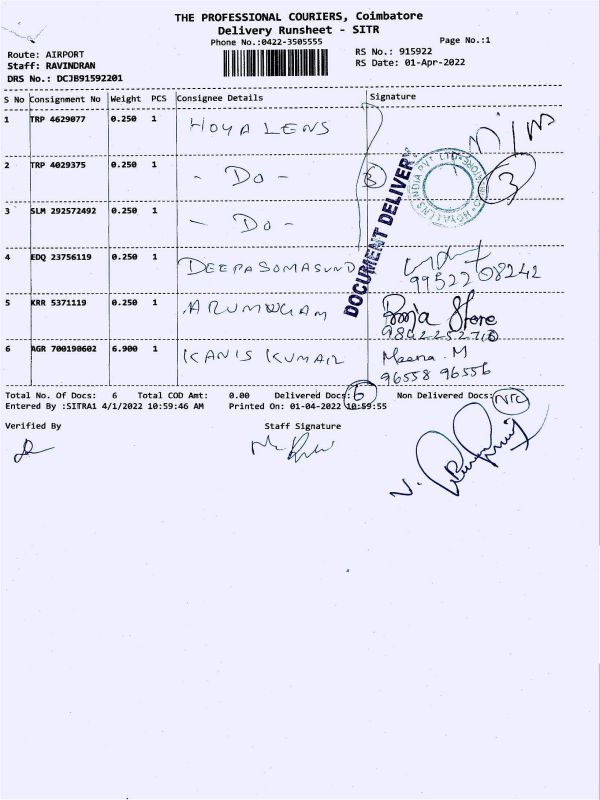 THE PROFESSIONAL COURIERS, Coimbatore
Delivery Runsheet - SITR
Phone No.:0422-3505555
Page No.:1
Route: AIRPORT
RS No.: 915922
Staff: RAVINDRAN
RS Date: 01-Apr-2022
DRS No.: DCJB91592201
S No Consignment No Weight PCS Consignee Details Signature
1 TRP 4629077 0.250 1 HOYA LENS
2 TRP 4029375 0.250 1 - DO - 3
3 SLM 292572492 0.250 1 - DO -
DOCUMENT DELIVERY
3
4 EDQ 23756119 0.250 1 DEEPA SOMASUND
99522 08242
5 KRR 5371119 0.250 1 ARUMUGAM Pooja Store
9842252710
6 AGR 700190602 6.900 1 KANIS KUMAR Meena. M
96558 96556
Total No. Of Docs: 6 Total COD Amt: 0.00 Delivered Docs: 6 Non Delivered Docs: NIL
Entered By :SITRA1 4/1/2022 10:59:46 AM Printed On: 01-04-2022 10:59:55
Verified By Staff Signature